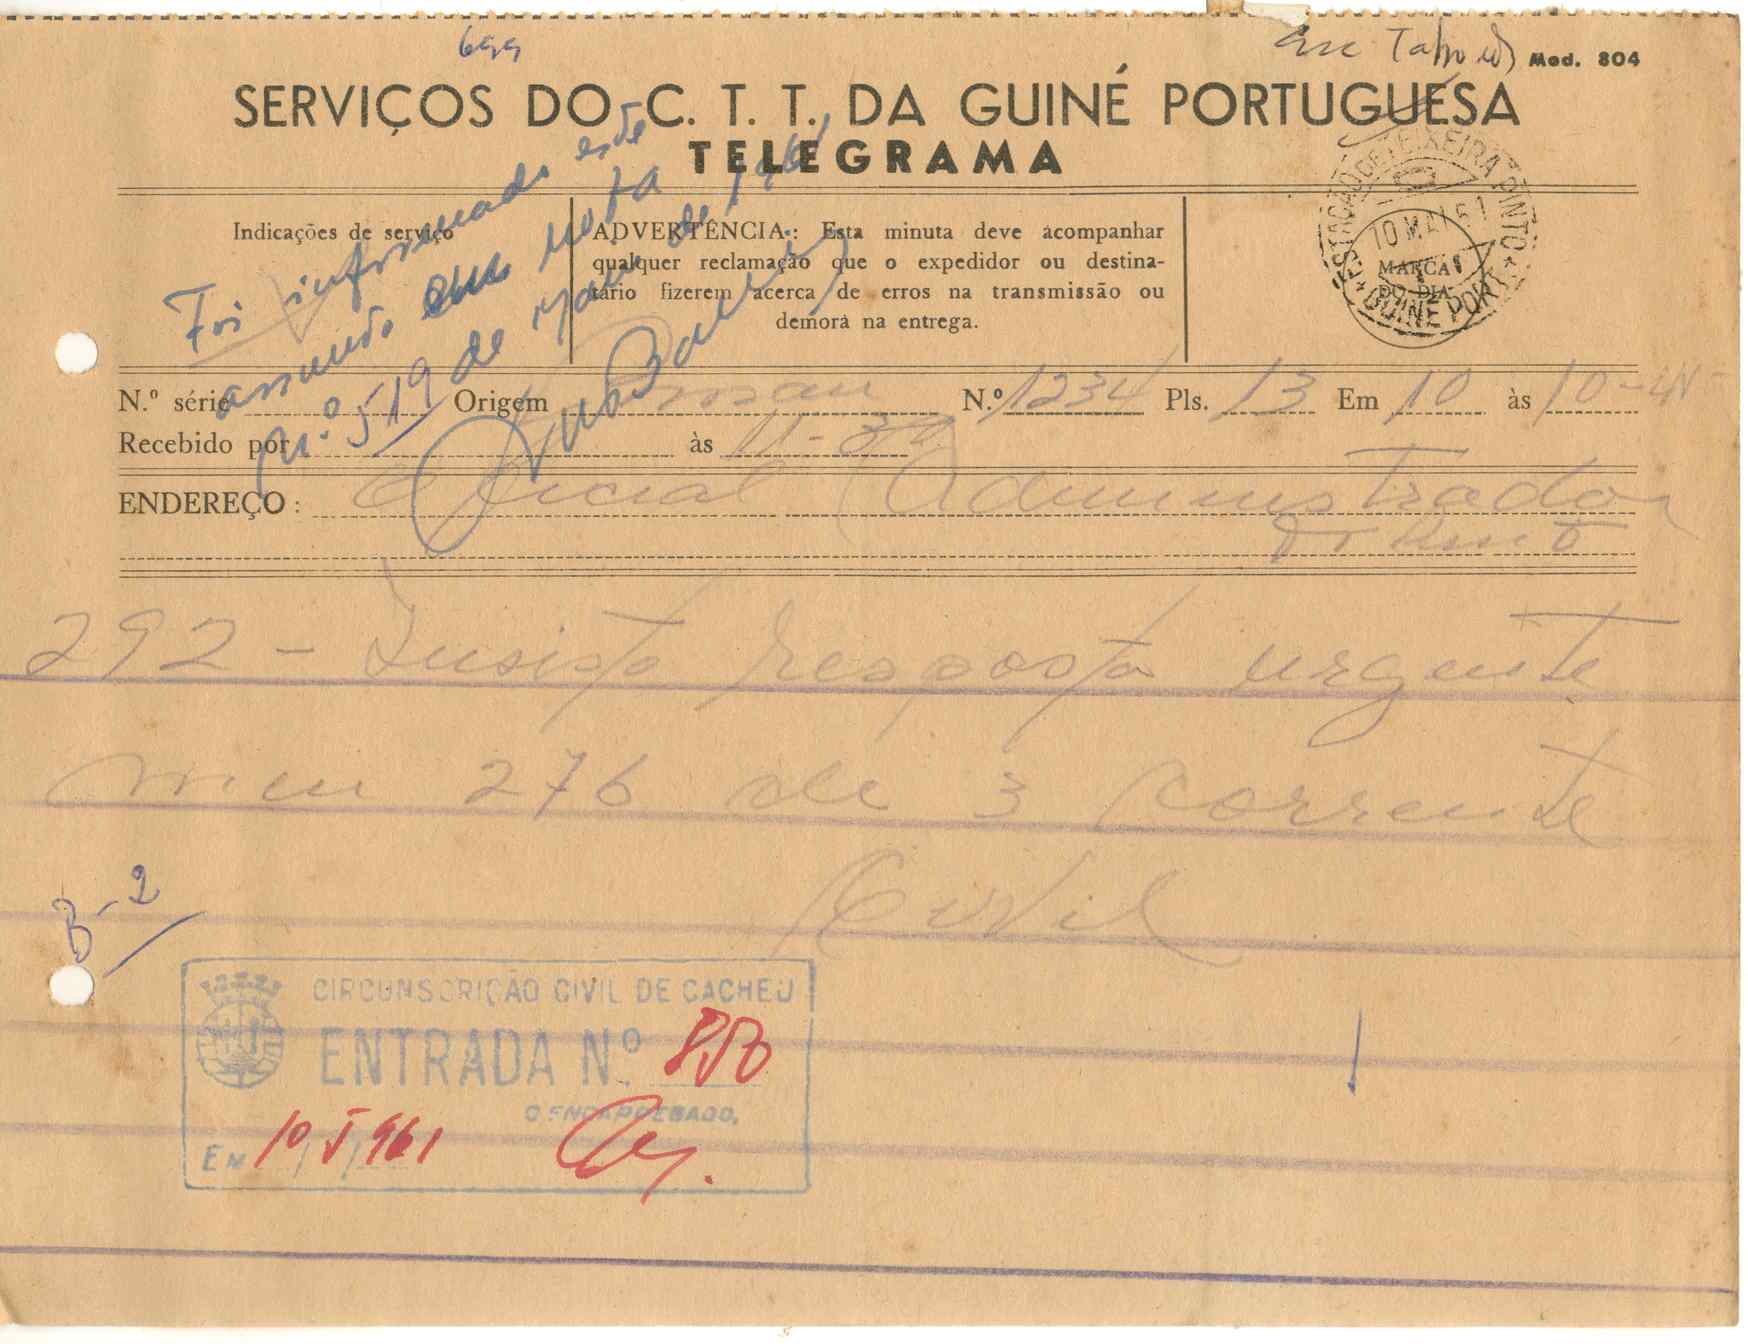 699
Mod. 804
SERVIÇOS DO C. T. T. DA GUINÉ PORTUGUESA
TELEGRAMA
Indicações de serviço
ADVERTÊNCIA: Esta minuta deve acompanhar
qualquer reclamação que o expedidor ou destina-
tário fizerem acerca de erros na transmissão ou
demora na entrega.
ESTAÇÃO DE TEIXEIRA PINTO
10 MAI 61
MARCA
DO DIA
GUINÉ PORT.
Foi informado este
assunto em nota
n.º 519 de de 1961
N.º série Origem Bissau N.º 1234 Pls. 13 Em 10 às 10-41
Recebido por às 11-30
ENDEREÇO: Oficial Administrador
292 - Insisto resposta urgente
meu 276 de 3 corrente
Civil
B-2
CIRCUNSCRIÇÃO CIVIL DE CACHEU
ENTRADA N.º
O ENCARREGADO,
EM 10/V/961